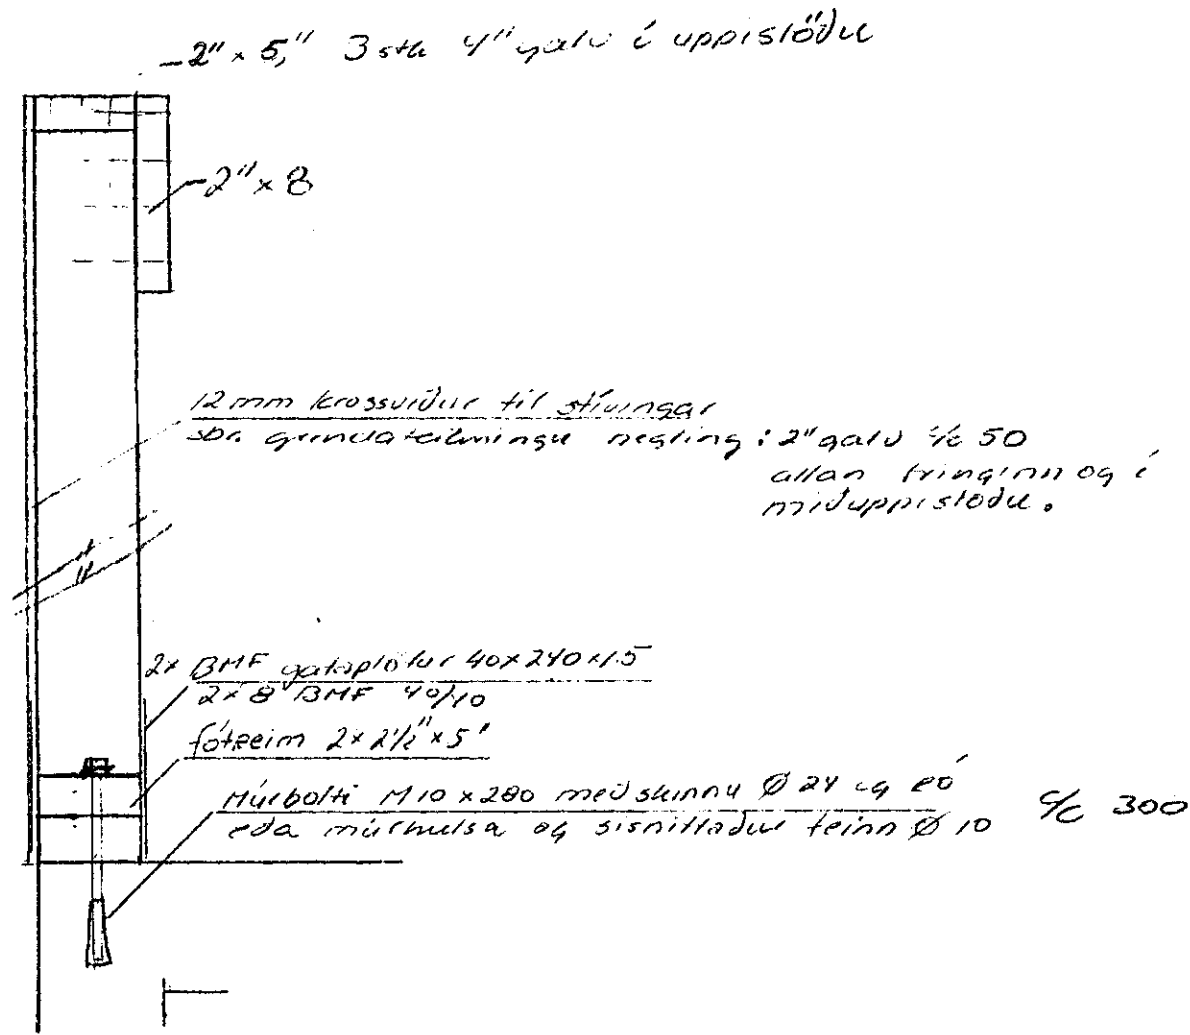 2" x 5," 3 stk 4" galv í uppistöðu
2" x 8
12 mm krossviður til stívingar
sbr. grunnateikningu negling: 2" galv c/c 50
allan hringinn og í
miðuppistöðu.
2x BMF gataplötur 40x240x1.5
2x 8 BMF 40/10
fótreim 2x 2½" x 5"
Múrbolti M10 x 280 með skinnu Ø 24 og ró
eða múrhulsa og snittaður teinn Ø 10 c/c 300